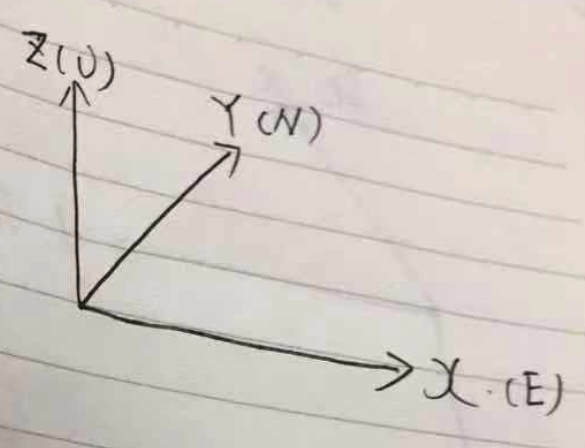 Z(U)
Y (N)
X.(E)